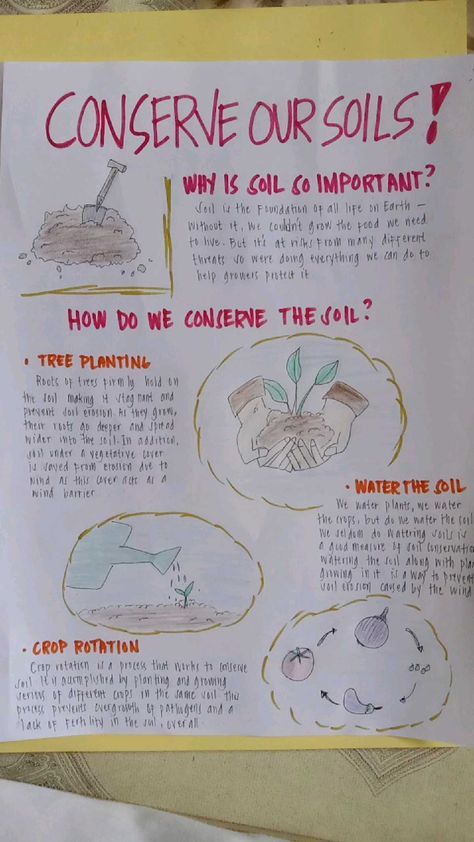 CONSERVE OUR SOILS!
WHY IS SOIL SO IMPORTANT?
Soil is the foundation of all life on Earth —
without it, we couldn't grow the food we need
to live. But it's at risks from many different
threats so were doing everything we can do to
help growers protect it.
HOW DO WE CONSERVE THE SOIL?
• TREE PLANTING
Roots of trees firmly hold on
the soil making it stagnant and
prevent soil erosion. As they grow,
their roots go deeper and spread
wider into the soil. In addition,
soil under a vegetative cover
is saved from erosion due to
wind as this cover acts as a
wind barrier.
• WATER THE SOIL
We water plants, we water
the crops, but do we water the soil
We seldom do watering soils is
a good measure of soil conservation
watering the soil along with plan
growing in it is a way to prevent
soil erosion caused by the wind
• CROP ROTATION
Crop rotation is a process that works to conserve
soil. It is accomplished by planting and growing
series of different crops in the same soil. This
process prevents overgrowth of pathogens and a
lack of fertility in the soil, overall.